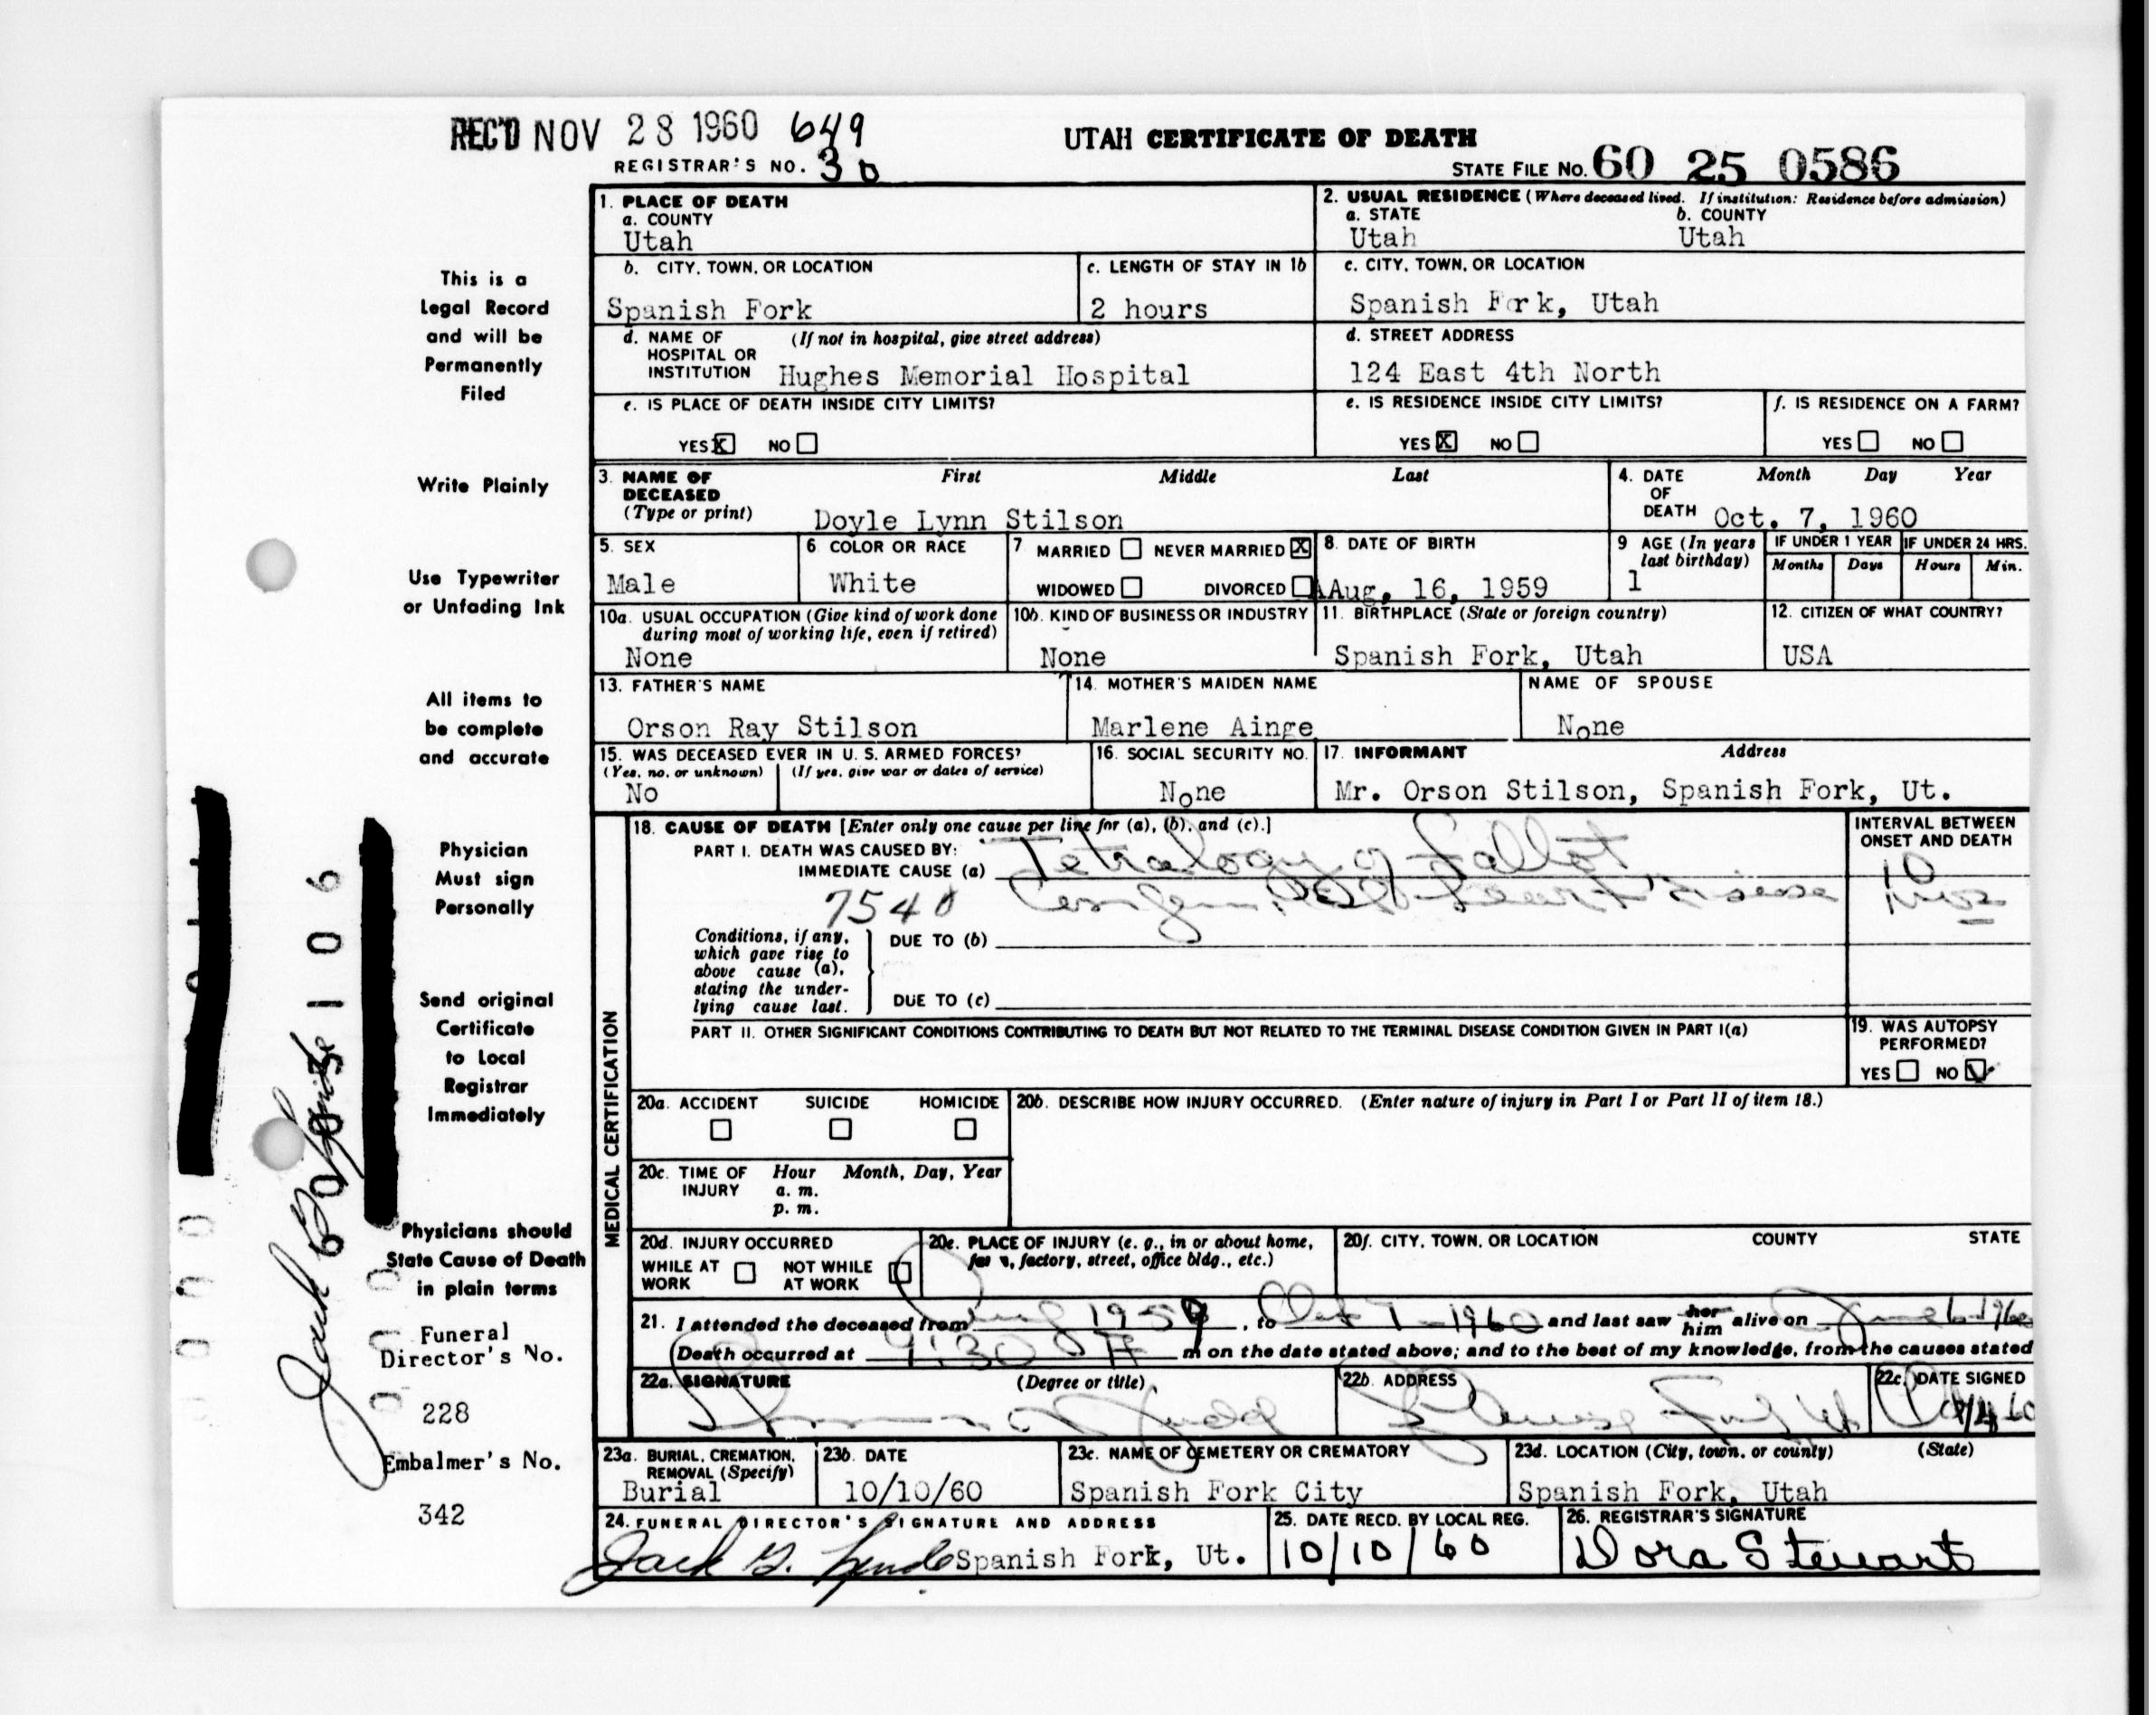 REC'D NOV 28 1960 649
REGISTRAR'S NO. 30
UTAH CERTIFICATE OF DEATH
STATE FILE NO. 60 25 0586
This is a
Legal Record
and will be
Permanently
Filed
Write Plainly
Use Typewriter
or Unfading Ink
All items to
be complete
and accurate
Physician
Must sign
Personally
Send original
Certificate
to Local
Registrar
Immediately
Physicians should
State Cause of Death
in plain terms
Funeral
Director's No.
228
Embalmer's No.
342
1. PLACE OF DEATH
a. COUNTY
Utah
2. USUAL RESIDENCE (Where deceased lived. If institution: Residence before admission)
a. STATE b. COUNTY
Utah Utah
b. CITY, TOWN, OR LOCATION
Spanish Fork
c. LENGTH OF STAY IN 1b
2 hours
c. CITY, TOWN, OR LOCATION
Spanish Fork, Utah
d. NAME OF (If not in hospital, give street address)
HOSPITAL OR
INSTITUTION Hughes Memorial Hospital
d. STREET ADDRESS
124 East 4th North
e. IS PLACE OF DEATH INSIDE CITY LIMITS?
YES X NO
e. IS RESIDENCE INSIDE CITY LIMITS?
YES X NO
f. IS RESIDENCE ON A FARM?
YES NO
3. NAME OF First Middle Last
DECEASED
(Type or print) Doyle Lynn Stilson
4. DATE Month Day Year
OF
DEATH Oct. 7, 1960
5. SEX
Male
6 COLOR OR RACE
White
7 MARRIED NEVER MARRIED X
WIDOWED DIVORCED
8. DATE OF BIRTH
Aug. 16, 1959
9 AGE (In years
last birthday)
1
IF UNDER 1 YEAR
Months Days
IF UNDER 24 HRS.
Hours Min.
10a. USUAL OCCUPATION (Give kind of work done
during most of working life, even if retired)
None
10b. KIND OF BUSINESS OR INDUSTRY
None
11. BIRTHPLACE (State or foreign country)
Spanish Fork, Utah
12. CITIZEN OF WHAT COUNTRY?
USA
13. FATHER'S NAME
Orson Ray Stilson
14. MOTHER'S MAIDEN NAME
Marlene Ainge
NAME OF SPOUSE
None
15. WAS DECEASED EVER IN U. S. ARMED FORCES?
(Yes, no, or unknown) (If yes, give war or dates of service)
No
16. SOCIAL SECURITY NO.
None
17. INFORMANT Address
Mr. Orson Stilson, Spanish Fork, Ut.
MEDICAL CERTIFICATION
18. CAUSE OF DEATH [Enter only one cause per line for (a), (b), and (c).]
PART I. DEATH WAS CAUSED BY:
IMMEDIATE CAUSE (a) Tetralogy of Fallot
7540 Heart Disease
Conditions, if any,
which gave rise to
above cause (a),
stating the under-
lying cause last.
DUE TO (b)
DUE TO (c)
INTERVAL BETWEEN
ONSET AND DEATH
PART II. OTHER SIGNIFICANT CONDITIONS CONTRIBUTING TO DEATH BUT NOT RELATED TO THE TERMINAL DISEASE CONDITION GIVEN IN PART I(a)
19. WAS AUTOPSY
PERFORMED?
YES NO
20a. ACCIDENT SUICIDE HOMICIDE
20b. DESCRIBE HOW INJURY OCCURRED. (Enter nature of injury in Part I or Part II of item 18.)
20c. TIME OF Hour Month, Day, Year
INJURY a. m.
p. m.
20d. INJURY OCCURRED
WHILE AT NOT WHILE
WORK AT WORK
20e. PLACE OF INJURY (e. g., in or about home,
farm, factory, street, office bldg., etc.)
20f. CITY, TOWN, OR LOCATION COUNTY STATE
21. I attended the deceased from Aug 1959, to Oct 7 - 1960 and last saw her him alive on June 6 1960
Death occurred at 9:30 m on the date stated above; and to the best of my knowledge, from the causes stated
22a. SIGNATURE (Degree or title)
Judd
22b. ADDRESS
22c. DATE SIGNED
23a. BURIAL, CREMATION,
REMOVAL (Specify)
Burial
23b. DATE
10/10/60
23c. NAME OF CEMETERY OR CREMATORY
Spanish Fork City
23d. LOCATION (City, town, or county) (State)
Spanish Fork, Utah
24. FUNERAL DIRECTOR'S SIGNATURE AND ADDRESS
Jack G. Spanish Fork, Ut.
25. DATE RECD. BY LOCAL REG.
10/10/60
26. REGISTRAR'S SIGNATURE
Dora Stewart